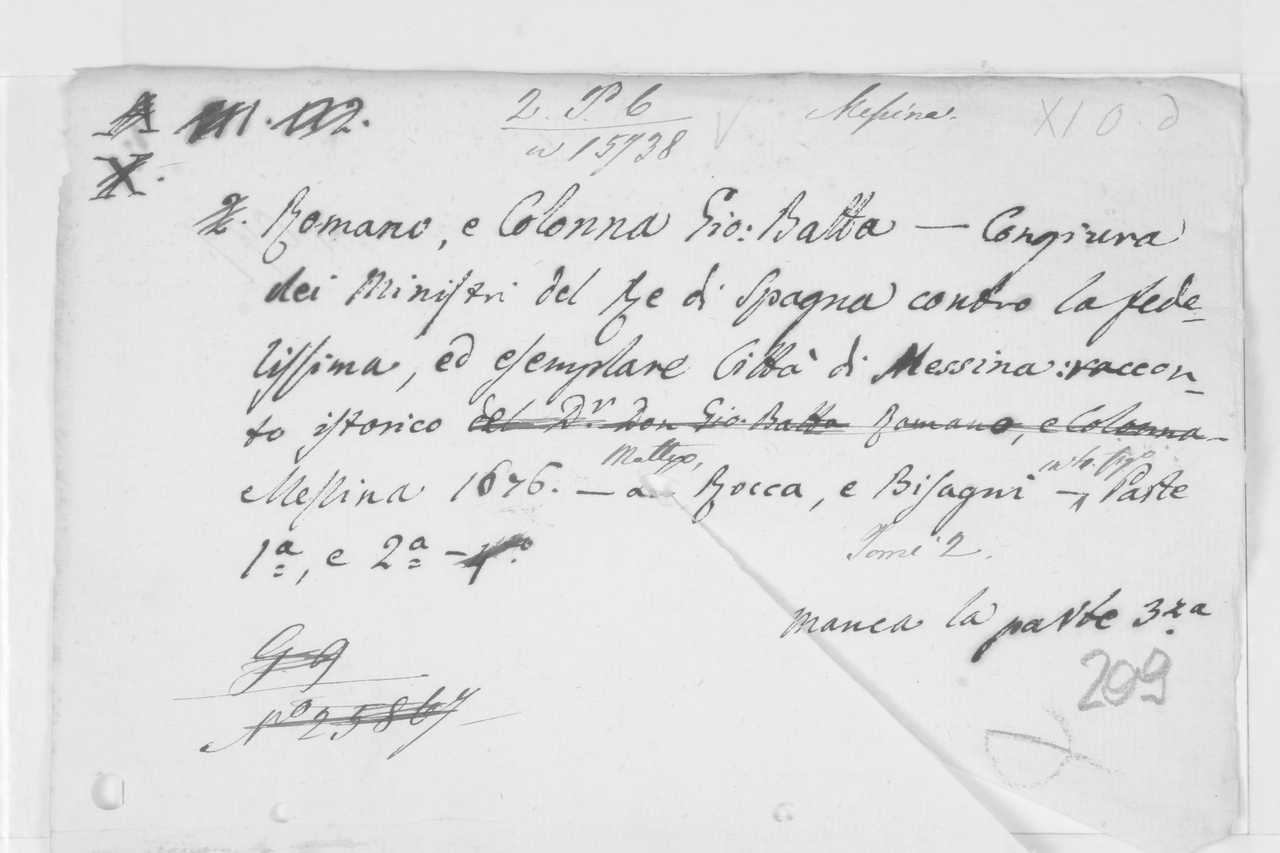 2. P. 6 Messina. XI O. d
n 15738
X.
2. Romano, e Colonna Gio: Batta — Congiura
dei Ministri del Re di Spagna contro la fede-
lissima, ed esemplare Città di Messina: raccon-
to istorico del Dr. Don Gio. Batta Romano, e Colonna -
Matteo,
Messina 1676. — La Rocca, e Bisagni — Parte
1a, e 2a — 4o
Tomi 2.
manca la parte 3za
209
G 9
No 25867